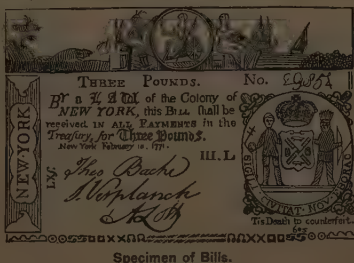 THREE POUNDS. No. 29854
BY a LAW of the Colony of
NEW YORK, this BILL shall be
received IN ALL PAYMENTS in the
Treasury, for Three Pounds.
New York February 16, 1771.
III.L
NEW-YORK
Theo Bache
S. Verplanck
SIGILL CIVITAT. NOV. EBORAC
Tis Death to counterfeit.
Specimen of Bills.